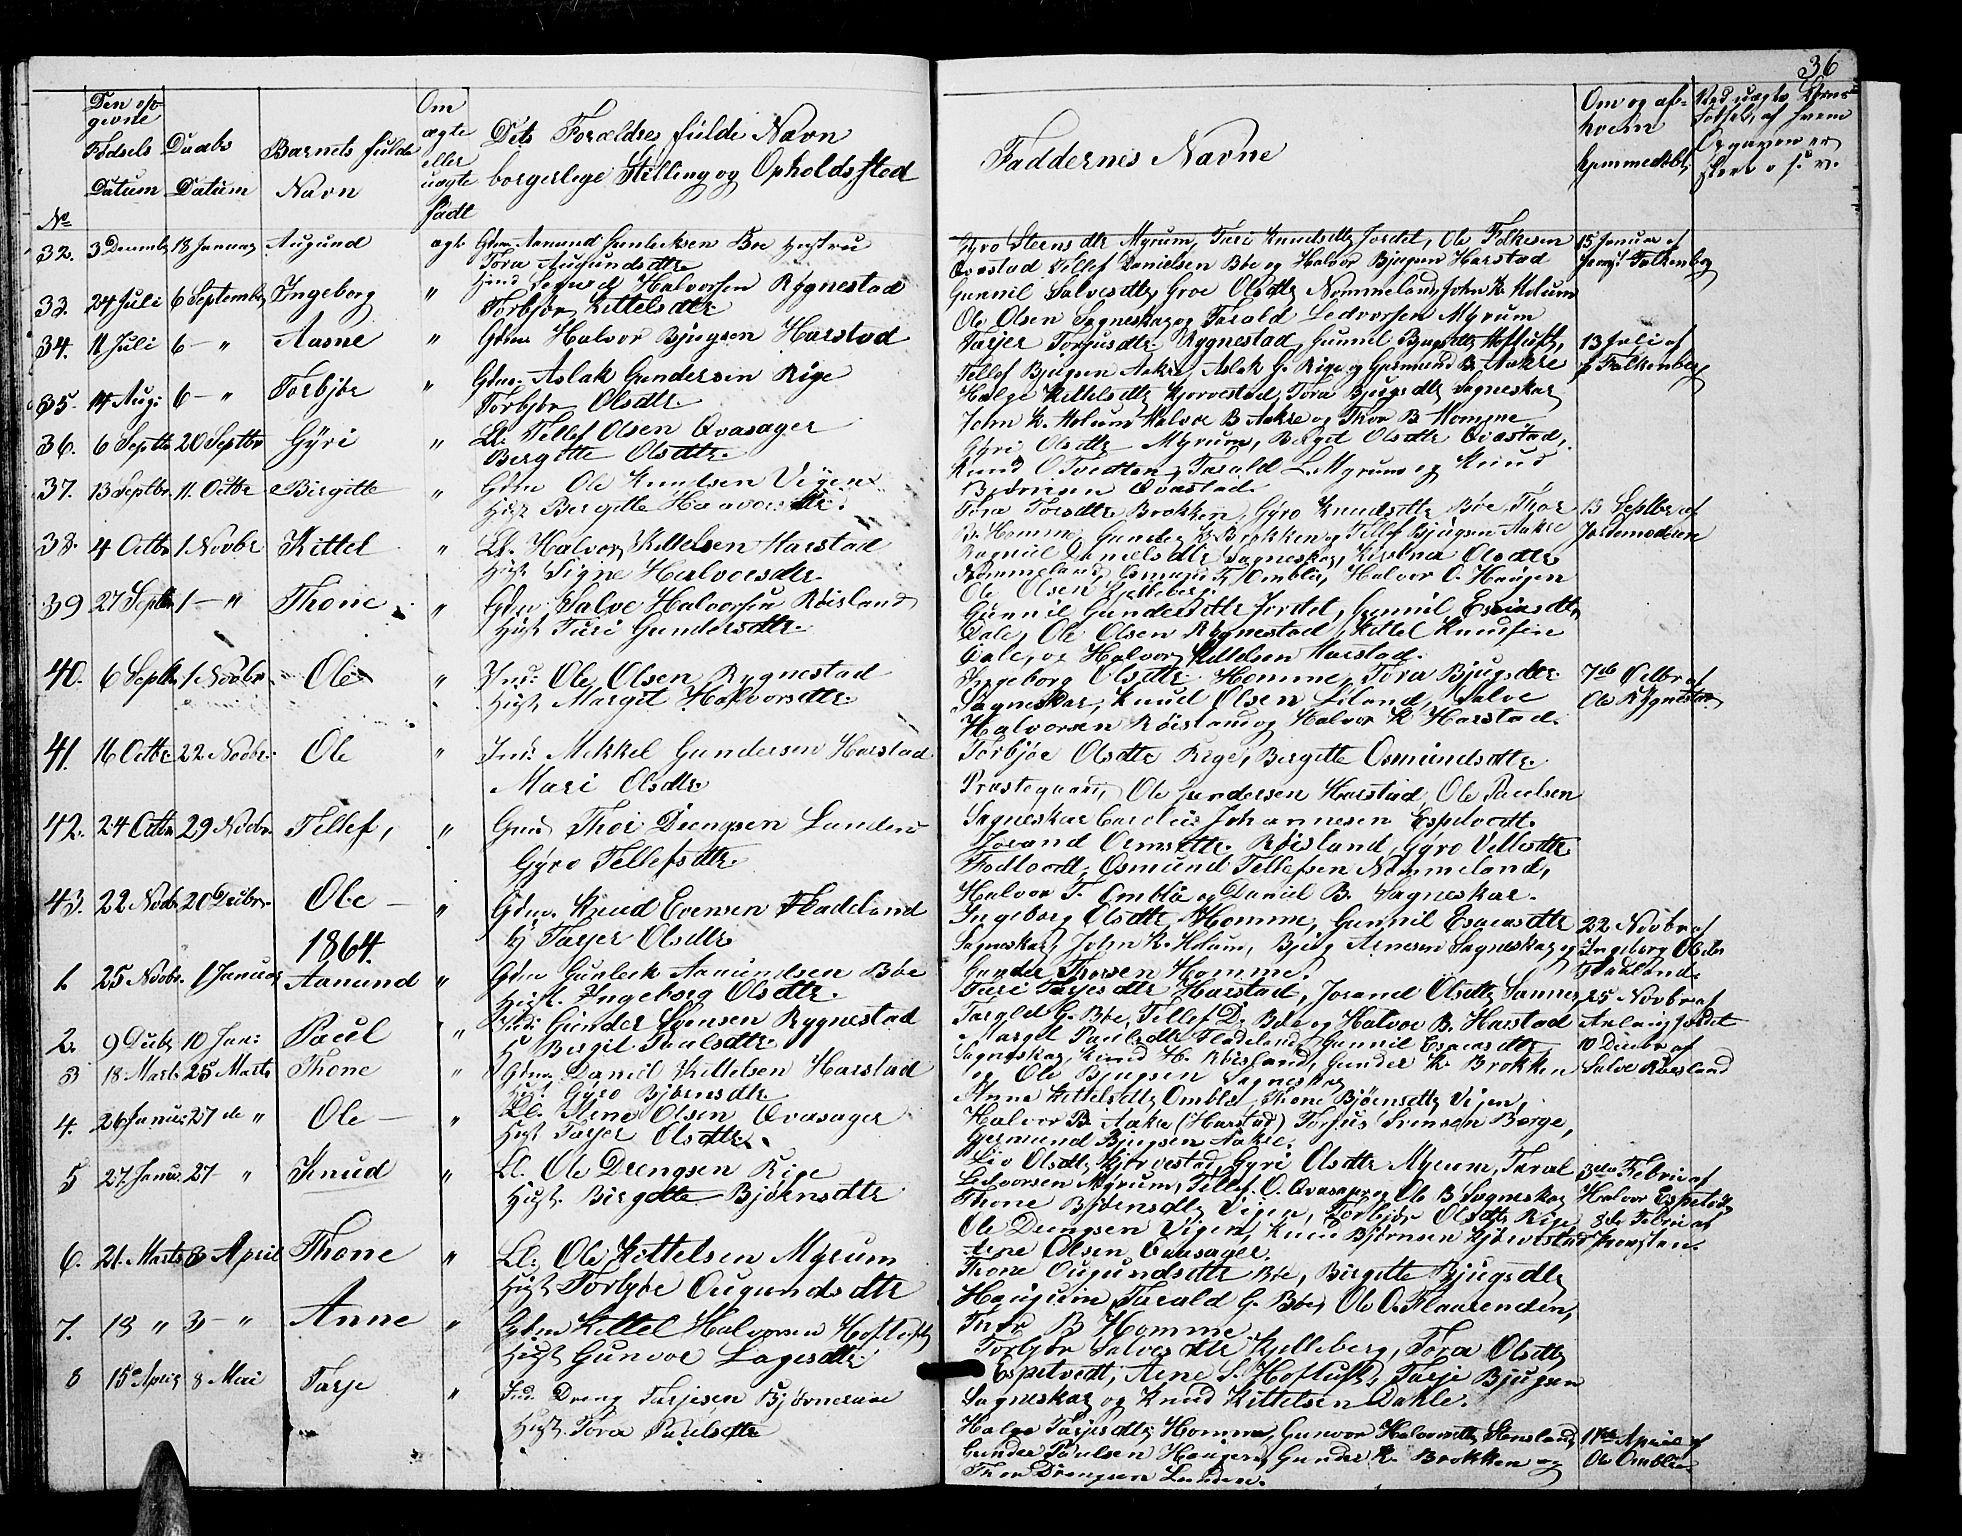 36
Den op-
givne
Fødsels
Datum
Daabs
Datum
Barnets fulde
Navn
Om
ægte
eller
uægte
født
Dets Forældres fulde Navn
borgerlige Stilling og Opholdssted
Faddernes Navne
Om og af
hvem
hjemmedøbt
Ved uægte Børns
Fødsel, af hvem
Opgaven er
skeet o. s. v.
No
32. 3 Decembr 18 Januar Augund ægte Gdm. Aanund Gunleksen Bøe Hustru
Tora Augundsdtr
Gyro Steensdtr Myrum, Turi Knudsdtr Jordet, Ole Folkesen
Qvastad Tellef Danielsen Bøe og Halvor Bjugsen Harstad
15 Januar af
Falkenberg
33. 24 Juli 6 Septembr Ingeborg " Halvorsen Rygnestad
Torbjør Kittelsdtr
Gunnil Salvesdtr, Groe Olsdtr Nommeland, John K. Holum
Ole Olsen Sagneskar og Tarald Ledvorsen Myrum
34. 11 Juli 6 — " Aasne " Gdm. Halvor Bjugsen Harstad
Tarjer Torjusdtr Rygnestad, Gunnil Bjugsdtr Hoftuft,
Tellef Bjugsen Aakre, Aslak G. Rige og Germund B. Aakre
13 Juli af
Falkenberg
35. 14 Aug: 6 — " Torbjør " Gdm. Aslak Gundersen Rige
Torbjør Olsdtr
Helge Kittelsdtr Kjørvestad, Tora Bjugsdtr Sagneskar
John K. Holum Halvor B Aakre og Thor B Homme
36. 6 Septbr 20 Septbr Gyri " Ll. Tellef Olsen Qvasager
Bergitte Olsdtr.
Gyri Olsdtr Myrum, Birgit Olsdtr Qvastad,
Knud O Tvedten, Tarald L. Myrum og Knud
Bjørnsen Qvastad.
37. 13 Septbr 11. Octbr Birgitte " Gdm Ole Knudsen Vigen
Hust Bergitte Halvorsdtr.
Tora Torsdtr Brokken, Gyro Knudsdtr Bøe, Thor
B. Homme, Gunder K. Brokken og Tellef Bjugsen Aakre
13 Septbr af
Jordemoderen
38. 4 Octbr 1 Novbr Kittel " Ll. Halvor Kittelsen Harstad
Hust Signe Halvorsdtr
Ragnil Danielsdtr Sagneskar, Kirstine Olsdtr
Nommeland, Osmund T. Omblie, Halvor O. Haugen
Ole Olsen Kjelleberg.
39 27 Septbr 1 — " Thone " Gdm. Salve Halvorsen Røisland
Hust Turi Gundersdtr
Gunnil Gundersdtr Jordet, Gunnil Evensdtr
Dale, Ole Olsen Rygnestad, Kittel Knudsen
Dale, og Halvor Kittelsen Harstad.
40. 6 Septbr 1 Novbr Ole " Ind: Ole Olsen Rygnestad
Hust Margit Halvorsdtr
Ingeborg Olsdtr Homme, Tora Bjugsdtr
Sagneskar, Knud Olsen Liland, Salve
Halvorsen Røisland og Halvor K Harstad.
7de Octbr af
Ole Rygnestad
41. 16 Octbr 22 Novbr. Ole " Ind: Mikkel Gundersen Harstad
Mari Olsdtr
Torbjør Olsdtr Rige, Bergitte Osmundsdtr
Præstegaard, Ole Gundersen Harstad, Ole Paulsen
Sagneskar Carolius Johannesen Espetvedt.
42. 24 Octbr 29 Novbr. Tellef, " Gdm Thor Drengsen Lunden
Gyro Tellefsdtr.
Jorand Ormsdtr. Røisland, Gyro Villesdtr
Flodtvedt, Osmund Tellefsen Nommeland,
Halvor T. Omblie og Daniel B. Sagneskar.
43. 22 Novbr 26 Decbr. Ole — " Gdm. Knud Evensen Fladeland
H. Tarjer Olsdtr
Ingeborg Olsdtr Homme, Gunnil Esaiasdtr
Sagneskar, John K. Holum, Bjug Arnesen Sagneskar og
Gunder Thorsen Homme.
22 Novbr af
Ingeborg Olsdtr
Fladeland.
1864.
1. 25 Novbr. 1 Januar Aanund " Gdm Gunleik Aanundsen Bøe
Hust. Ingeborg Olsdtr.
Turi Tarjesdtr Harstad, Jorand Olsdtr Sannes,
Targld G. Bøe, Tellef D. Bøe og Halvor B. Harstad
25 Novbr af
Jordet
2. 9 Decbr 10 Jan: Paul " Ind: Gunder Svensen Rygnestad
H Birgit Paulsdtr.
Margit Paulsdtr Fladeland, Gunnil Esaiasdtr
Sagneskar, Knud H. Røisland, Gunder K. Brokken
og Ole Bjugsen Sagneskar
10 Decbr af
Salve Røisland
3 18 Marts 25 Marts Thone " Gdm. Daniel Kittelsen Harstad
Hust. Gyro Bjørnsdtr
Anne Kittelsdtr Omblie, Thone Bjørnsdtr Vigen,
Halvor B. Aakre (Harstad) Torjus Svensen Børge,
Germund Bjugsen Aakre.
4. 26 Januar 27 de " Ole — " Ll. Arne Olsen Qvasager
Hust Tarjer Olsdtr
Liv Olsdtr Kjørvestad, Gyri Olsdtr Myrum, Taral
Ledvorsen Myrum, Tellef O. Qvasager og Ole B Sagneskar
3den Februar af
Halvor Espetvedt
5 27. Januar. 27 — " Knud " Ll. Ole Drengsen Rige
Hust. Birgitte Bjørnsdtr
Thone Bjørnsdtr Vigen, Torbjør Olsdtr Rige,
Ole Drengsen Vigen, Knud Bjørnsen Kjørvestad
Arne Olsen Qvasager.
3de Februar af
6. 21. Marts 3 April Thone " Ll: Ole Kittelsen Myrum
Hust Torbjør Ougundsdtr
Thone Ougundsdtr Bøe, Birgitte Bjugsdtr
Haugum, Tarald G. Bøe, Ole O. Flaarenden,
Thor B Homme
7. 13 " 3 — " Anne " Gdm Kittel Halvorsen Hoftuft
Hust Gunvor Lagesdtr
Torbjør Salvesdtr Kjelleberg, Tora Olsdtr
Espetvedt, Arne S. Hoftuft, Tarje Bjugsen
Sagneskar og Knud Kittelsen Dahle.
8 15de April 8 Mai Tarje " Ind. Dreng Tarjesen Bjørneraae
Hust. Tora Paulsdtr
Helge Tarjesdtr Homme, Gunvor Halvorsdtr Stensland,
Gunder Paulsen Haugen, Gunder K. Brokken og
Thor Drengsen Lunden.
April af
Ole Omblie